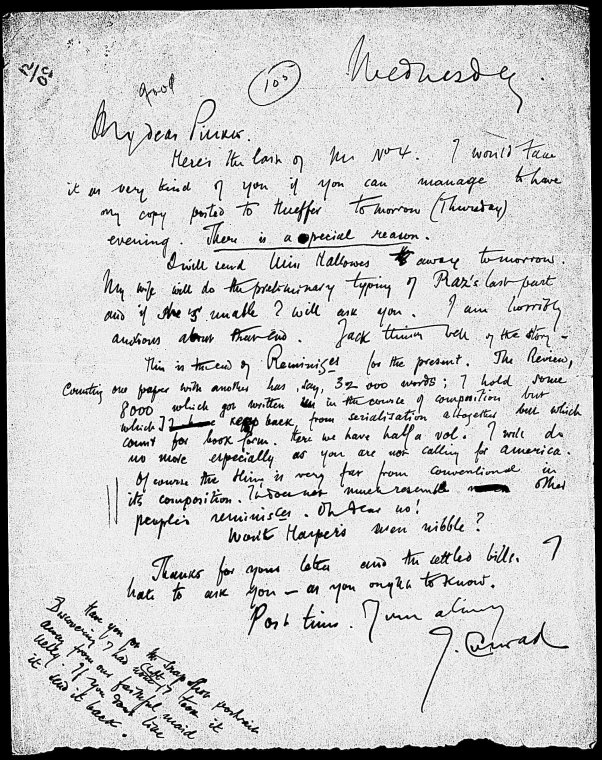 103
Wednesday.
good
My dear Pinker.
Here's the last of Ms No 4. I would take
it as very kind of you if you can manage to have
my copy posted to Hueffer tomorrow (Thursday)
evening. There is a special reason.
I will send Miss Hallowes away tomorrow.
My wife will do the preliminary typing of Raz's last part
and if she is unable I will ask you. I am horribly
anxious about that end. Jack thinks well of the story –
This is the end of Reminisces for the present. The Review,
Counting one paper with another has, say, 32000 words; I hold some
8000 which got written in the course of composition but
which I keep back from serialisation altogether but which
count for book form. Here we have half a vol. I will do
no more especially as you are not calling for america.
Of course the thing is very far from conventional in
its composition. It does not much resemble other
people's reminisces. Oh dear no!
Won't Harpers men nibble?
Thanks for yours later and the settled bills. I
hate to ask you – as you ought to know.
Post time. Yours always
J. Conrad
Have you got the snap shot portrait
Discovering I had I took it
away from our faithful maid
Nelly. If you don't like
it send it back.